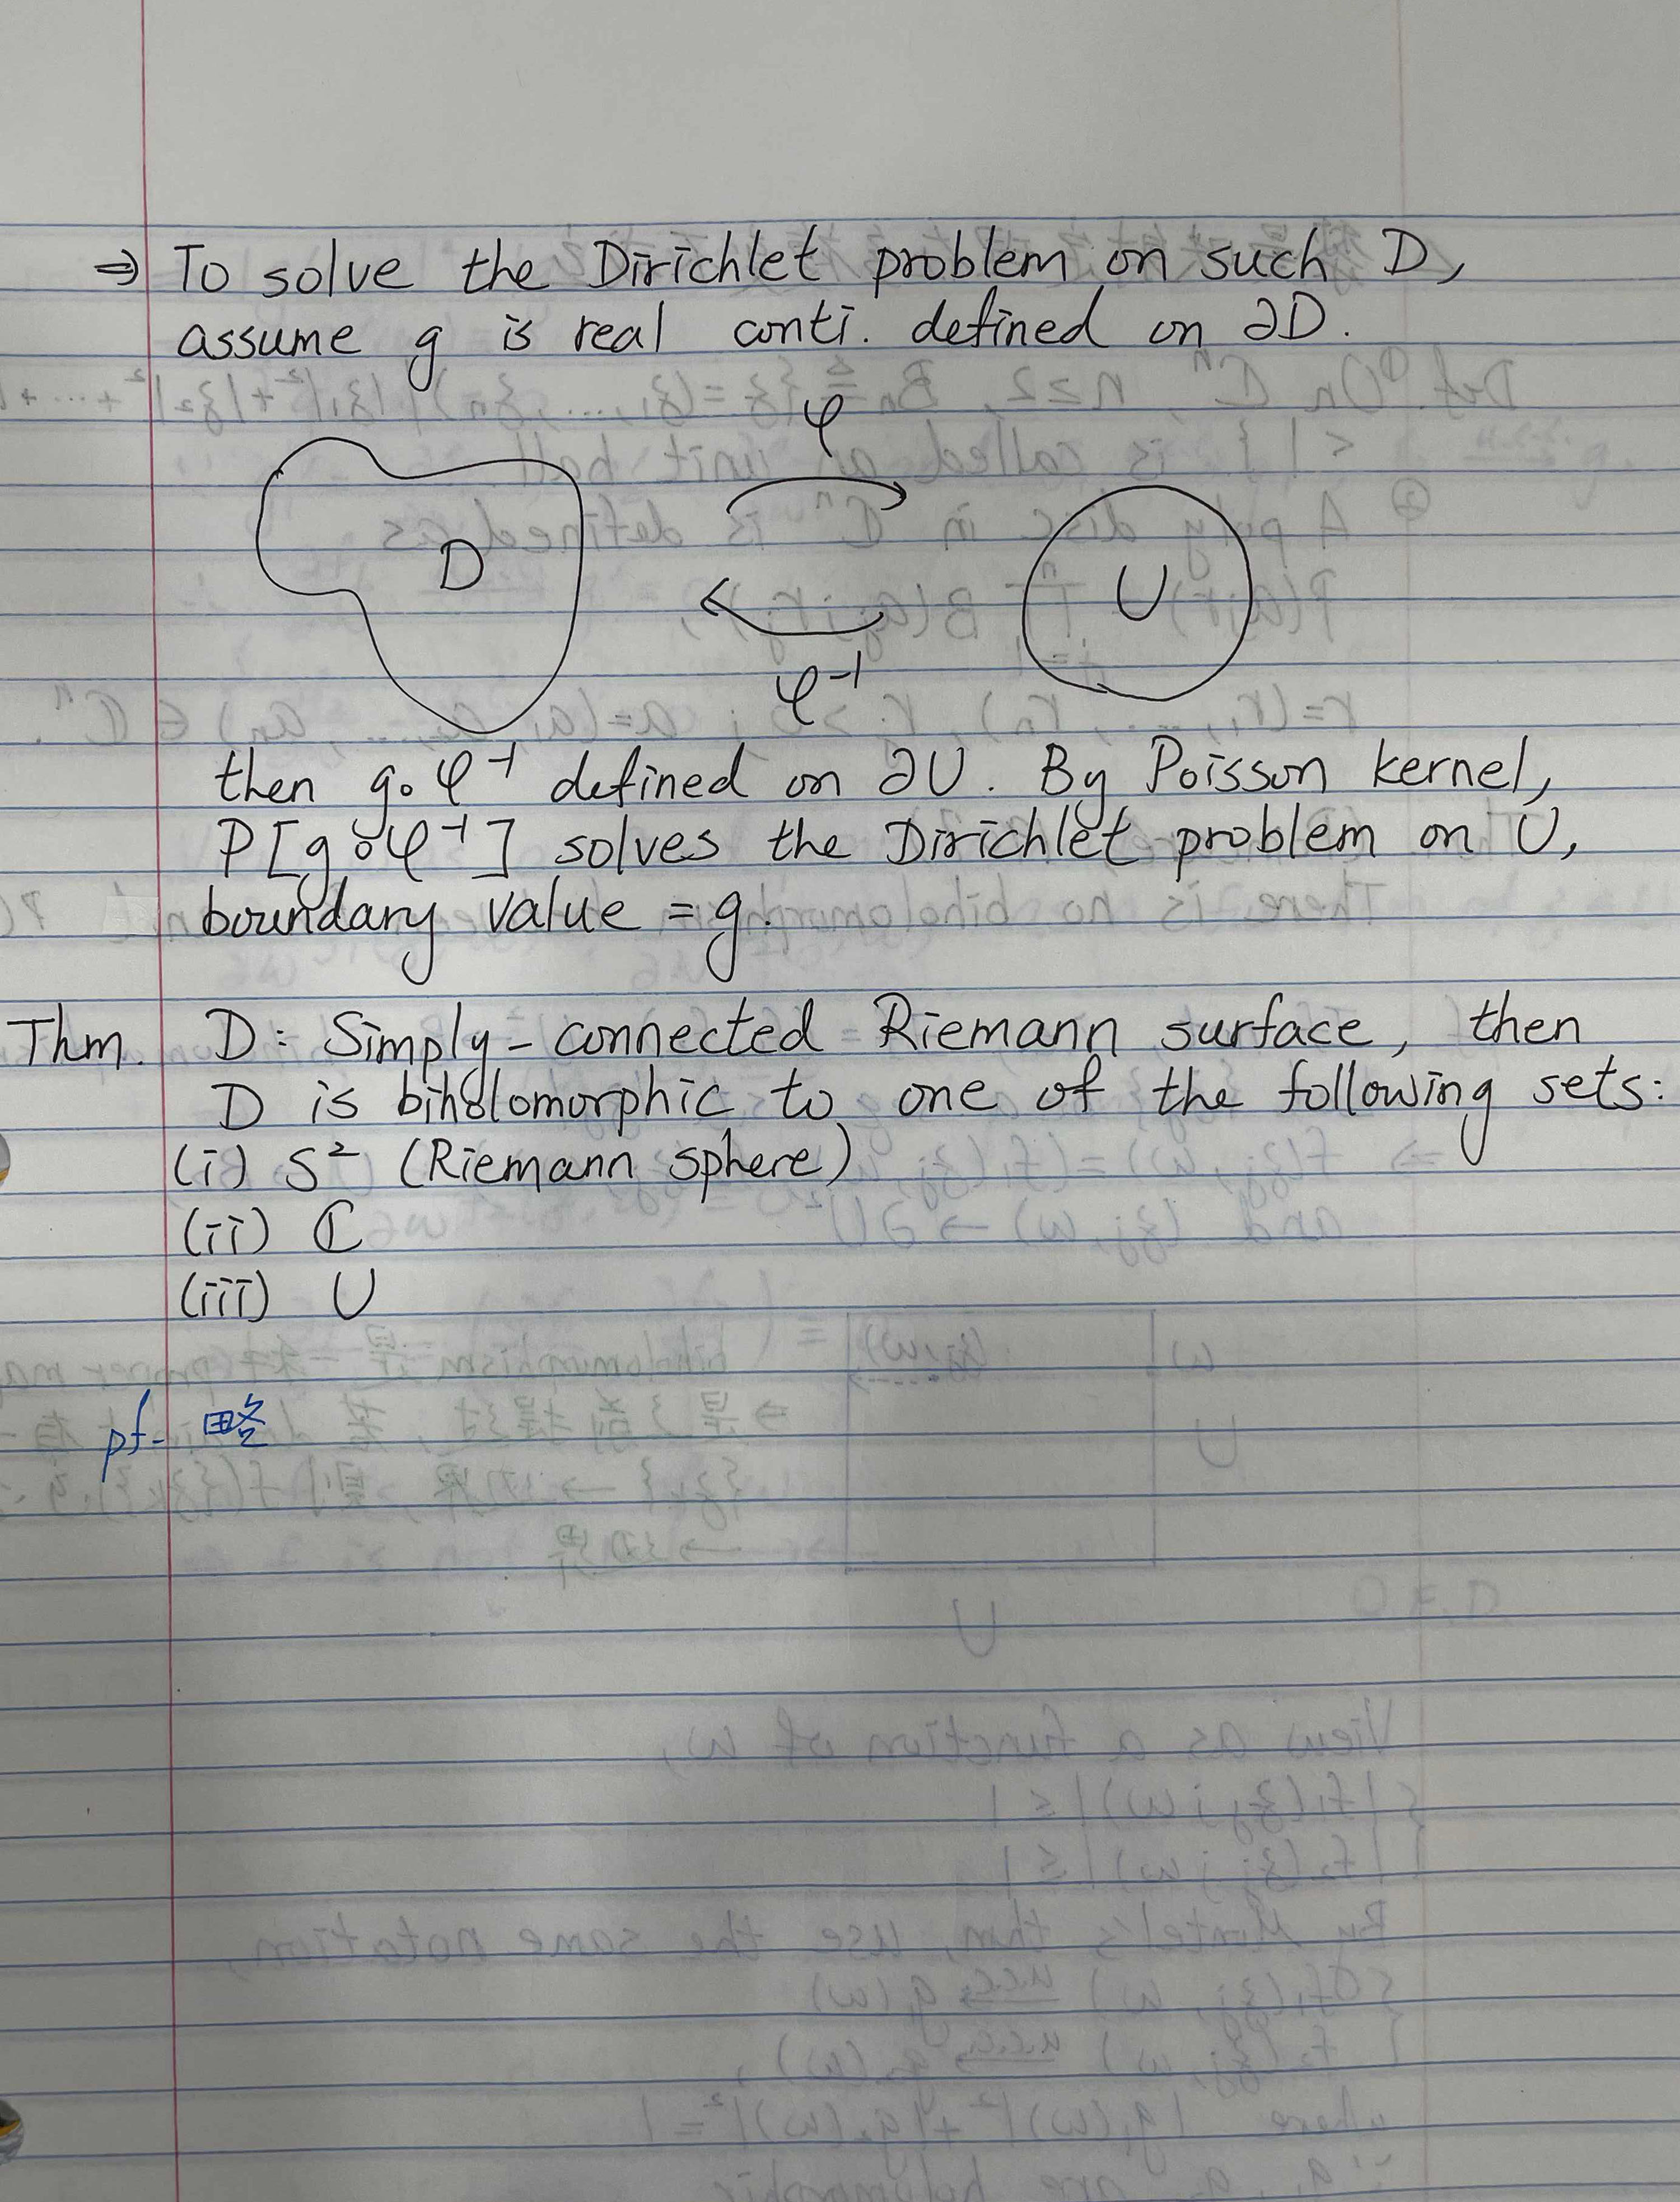 ⇒ To solve the Dirichlet problem on such D,
assume g is real conti. defined on ∂D.
φ
D
U
φ⁻¹
then g∘φ⁻¹ defined on ∂U. By Poisson kernel,
P[g∘φ⁻¹] solves the Dirichlet problem on U,
boundary value = g.
Thm. D: Simply-connected Riemann surface, then
D is biholomorphic to one of the following sets:
(i) S² (Riemann sphere)
(ii) ℂ
(iii) U
pf. 略